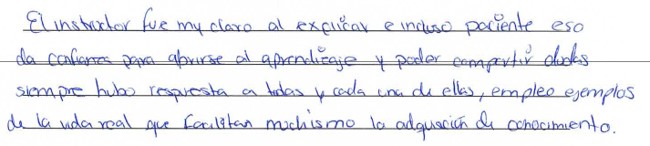 El instructor fue my claro al explicar e incluso paciente eso
da confianza para abrirse al aprendizaje y poder compartir dudas
siempre hubo respuesta a todas y cada una de ellas, empleo ejemplos
de la vida real que facilitan muchismo la adquisición de conocimiento.